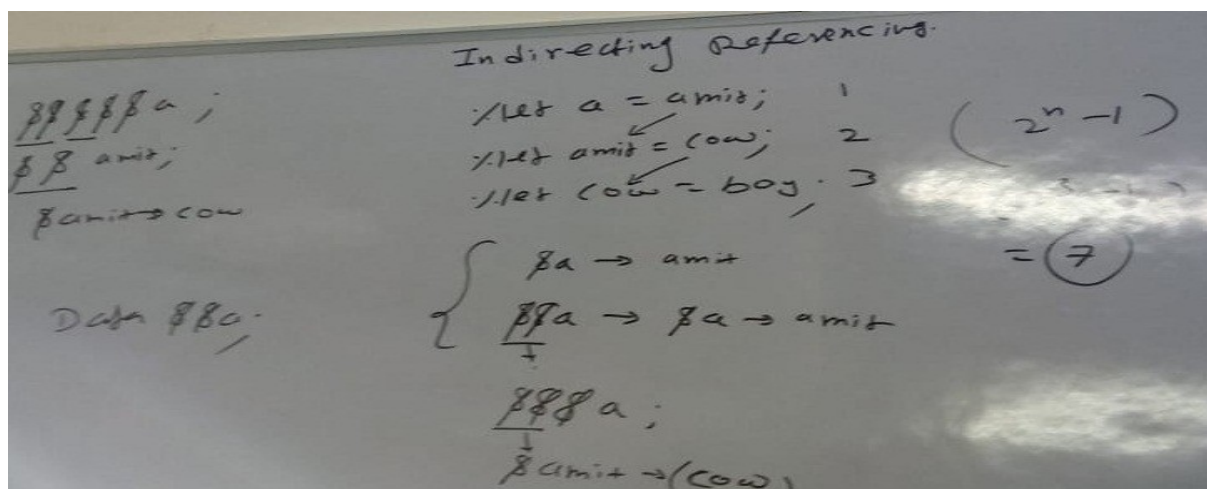 Indirecting Referencing.
&&&&&a;
&&amit;
&amit→cow
Data &&a;
%let a = amit; 1
%let amit = cow; 2
%let cow = boy; 3
&a → amit
&&a → &a → amit
&&&a;
&amit → (cow)
(2ⁿ - 1)
= 7